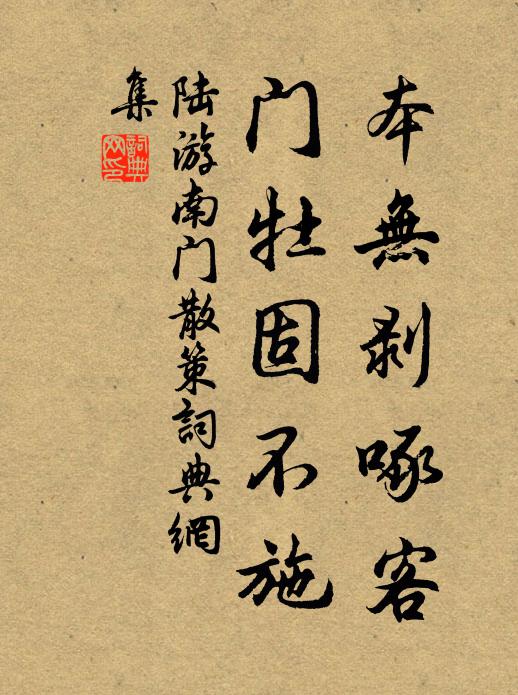 本無剥啄客
门牡固不施
陆游南门散策詞典網
集
詞典
网印